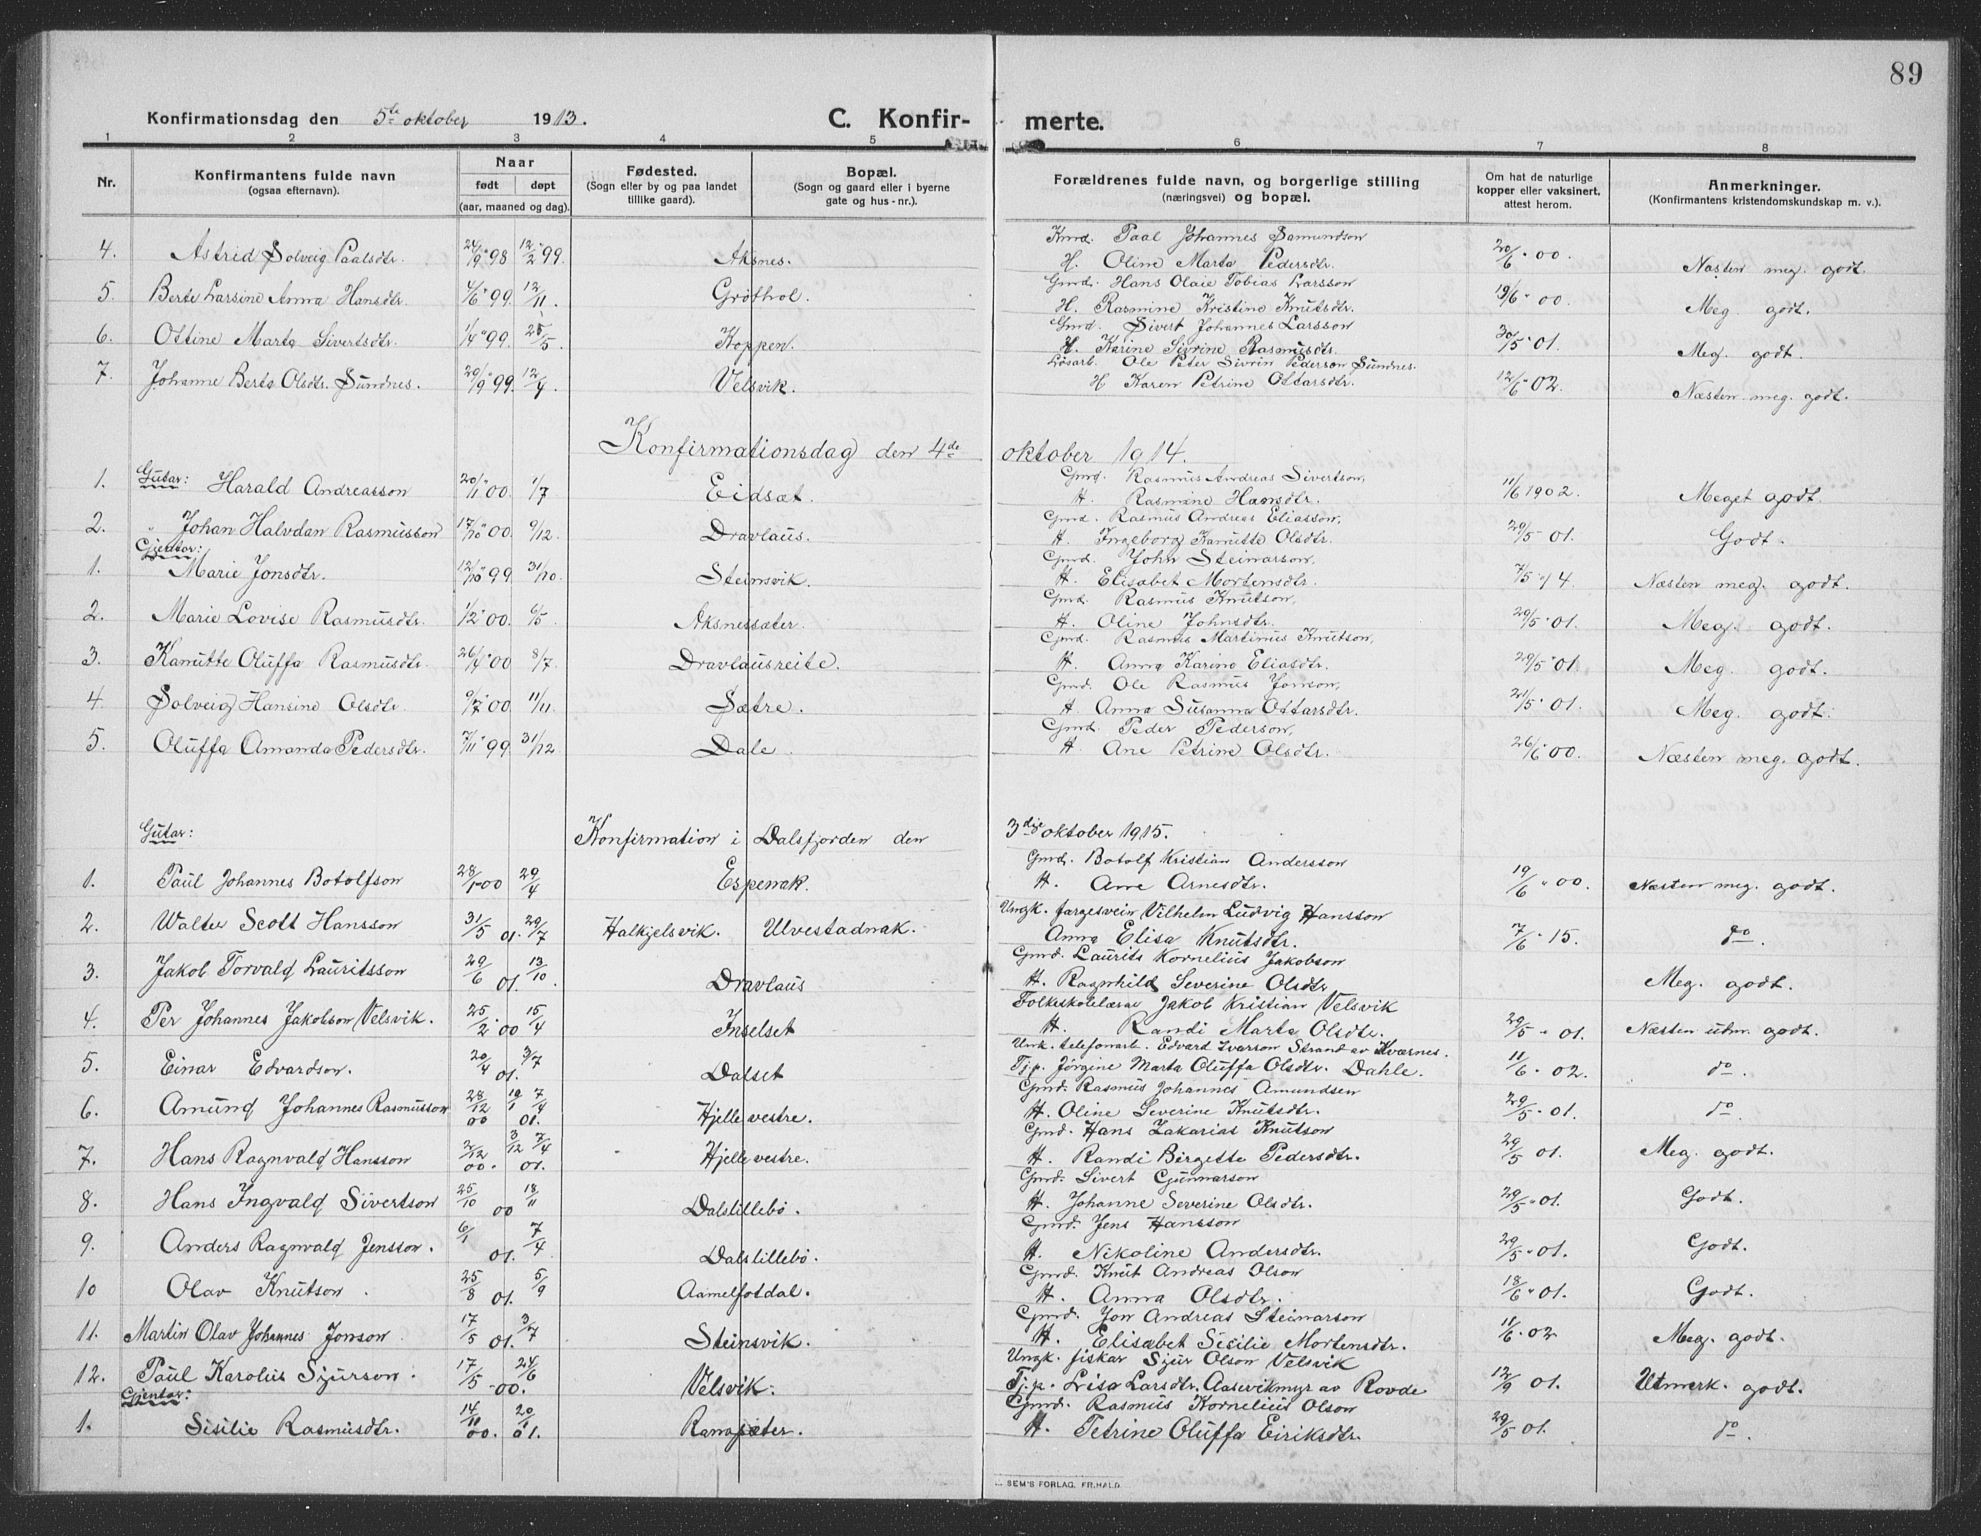 89
Konfirmationsdag den 5te oktober 1913. C. Konfir- merte.
1 2 3 4 5 6 7 8
Nr. Konfirmantens fulde navn (ogsaa efternavn). Naar født døpt (aar, maaned og dag). Fødested. (Sogn eller by og paa landet tillike gaard). Bopæl. (Sogn og gaard eller i byerne gate og hus-nr.). Forældrenes fulde navn, og borgerlige stilling (næringsvei) og bopæl. Om hat de naturlige kopper eller vaksinert, attest herom. Anmerkninger. (Konfirmantens kristendomskundskap m. v.).
Kmd. Paal Johannes Samundson
4. Astrid Solveig Paalsdtr. 24/9 98 12/2 99. Aksnes. H. Oline Marta Pedersdtr. 20/6 00. Næsten meg. godt
Gmd. Hans Olaie Tobias Larsson
5. Berte Larsine Anna Hansdtr. 4/6 99 12/11. Grøthol. H. Rasmine Kristine Knutsdtr. 19/6 00. Meg. godt.
Gmd. Sivert Johannes Larsson
6. Ottine Marta Sivertsdtr. 1/4 99. 25/5. Koppen. H. Karine Sivrine Rasmusdtr. 30/5 01. Meg. godt.
Løsarb. Ole Peter Sivrin Pederson Sundnes.
7. Johanne Berta Olsdtr. Sundnes. 20/9 99. 12/4. Velsvik. H Karen Petrine Ottarsdtr. 12/6 02. Næsten meg. godt.
Konfirmationsdag den 4de oktober 1914.
Gmd. Rasmus Andreas Sivertson,
1. Gutar: Harald Andreasson 20/1 00. 1/7 Eidsæt. H. Rasmine Hansdtr. 11/6 1902. Meget godt.
Gmd. Rasmus Andreas Eliasson,
2. " Johan Halvdan Rasmusson 17/10 00 9/12. Dravlaus. H. Ingeborg Kanutte Olsdtr. 29/5 01. Godt.
Gjentor:
Gmd. John Steinarson,
1. Marie Jonsdtr. 12/10 99 31/10. Steinsvik. H. Elisabet Mortensdtr. 7/5 14. Næsten meg. godt.
Gmd. Rasmus Knutson,
2. Marie Lovise Rasmusdtr. 1/2 00. 6/5. Aksnessæter. H. Oline Johnsdtr. 29/5 01. Meg. godt.
Gmd. Rasmus Martinus Knutson,
3. Kanutte Oluffa Rasmusdtr. 26/4 00 8/7. Dravlausreite. H. Anna Karina Eliasdtr. 29/5 01. Meg. godt.
Gmd. Ole Rasmus Jonson,
4. Solveig Hansine Olsdtr. 9/7 00 11/11. Sætre. H. Anna Susanna Ottarsdtr. 21/5 01. Meg. godt.
Gmd. Peder Pederson,
5. Oluffa Amanda Pedersdtr. 7/11 99. 31/12. Dale. H. Ane Petrine Olsdtr. 26/6 00. Næsten meg. godt.
Gutar: Konfirmation i Dalsfjorden den 3dje oktober 1915.
Gmd. Botolf Kristian Andersson
1. Paul Johannes Botolfson 28/1 00 29/4 Espenak. H. Ane Arnesdtr. 19/6 00. Næsten meg. godt.
Ungk. fargesvein Vilhelm Ludvig Hansson
2. Walter Scott Hansson 31/5 01. 29/7 Halkjelsvik. Ulvestadnak. Anna Elisa Knutsdtr. 7/6 15. do.
Gmd. Laurits Kornelius Jakobson
3. Jakob Torvald Lauritsson 29/6 01. 13/10. Dravlaus H. Ragnhild Severine Olsdtr Meg. godt.
Folkeskolelærar Jakob Kristian Velsvik
4. Per Johannes Jakobson Velsvik. 25/2 00 15/4 Inselset H. Randi Marta Olsdtr. 29/5 01. Næsten udm. godt.
Unk. telefonarb. Edvard Ivarson Strand av Kværnes.
5. Einar Edvardson. 20/4 01. 3/7 Dalset Tj.p. Jørgine Marta Oluffa Olsdtr. Dahle. 11/6 02. do.
Gmd. Rasmus Johannes Amundsen
6. Amund Johannes Rasmusson 28/12 00 19/1 7/4 01. Hjelle vestre. H. Oline Severine Knutsdtr. 29/5 01. do.
Gmd. Hans Zakarias Knutson
7. Hans Ragnvald Hansson 2/12 00. 3/12 7/4 01. Hjelle vestre. H. Randi Birgette Pedersdtr. 29/5 01. Meg. godt.
Gmd. Sivert Gunnarson
8. Hans Ingvald Sivertson 25/10 00 18/11 Dalslillebø. H. Johanne Severine Olsdtr. 29/5 01. Godt.
Gmd. Jens Hansson
9. Anders Ragnvald Jensson. 6/1 01. 7/4 Dalslillebø. H. Nikoline Andersdtr. 29/5 01. Godt.
Gmd. Knut Andreas Olson
10 Olav Knutson. 25/8 01. 5/9 Aamelfotdal. H. Anna Olsdtr. 18/6 01. Godt.
Gmd. Jon Andreas Steinarson
11. Martin Olav Johannes Jonson. 17/5 01. 3/7 Steinsvik. H. Elisabet Sisilie Mortensdtr. 11/6 02. Meg. godt.
Ungk. fiskar Sjur Olson Velsvik
12. Paul Karolus Sjurson. 17/5 00. 24/6 Velsvik. Tj.p. Lisa Larsdtr. Aasevikmyr av Rovde 12/9 01. Utmerk. godt.
Gjentar:
Gmd. Rasmus Kornelius Olson
1. Sisilie Rasmusdtr. 14/11 00. 20/1 01. Ramsæter. H. Petrine Oluffa Eiriksdtr. 29/5 01. do.
SEM'S FORLAG, FR.HALD